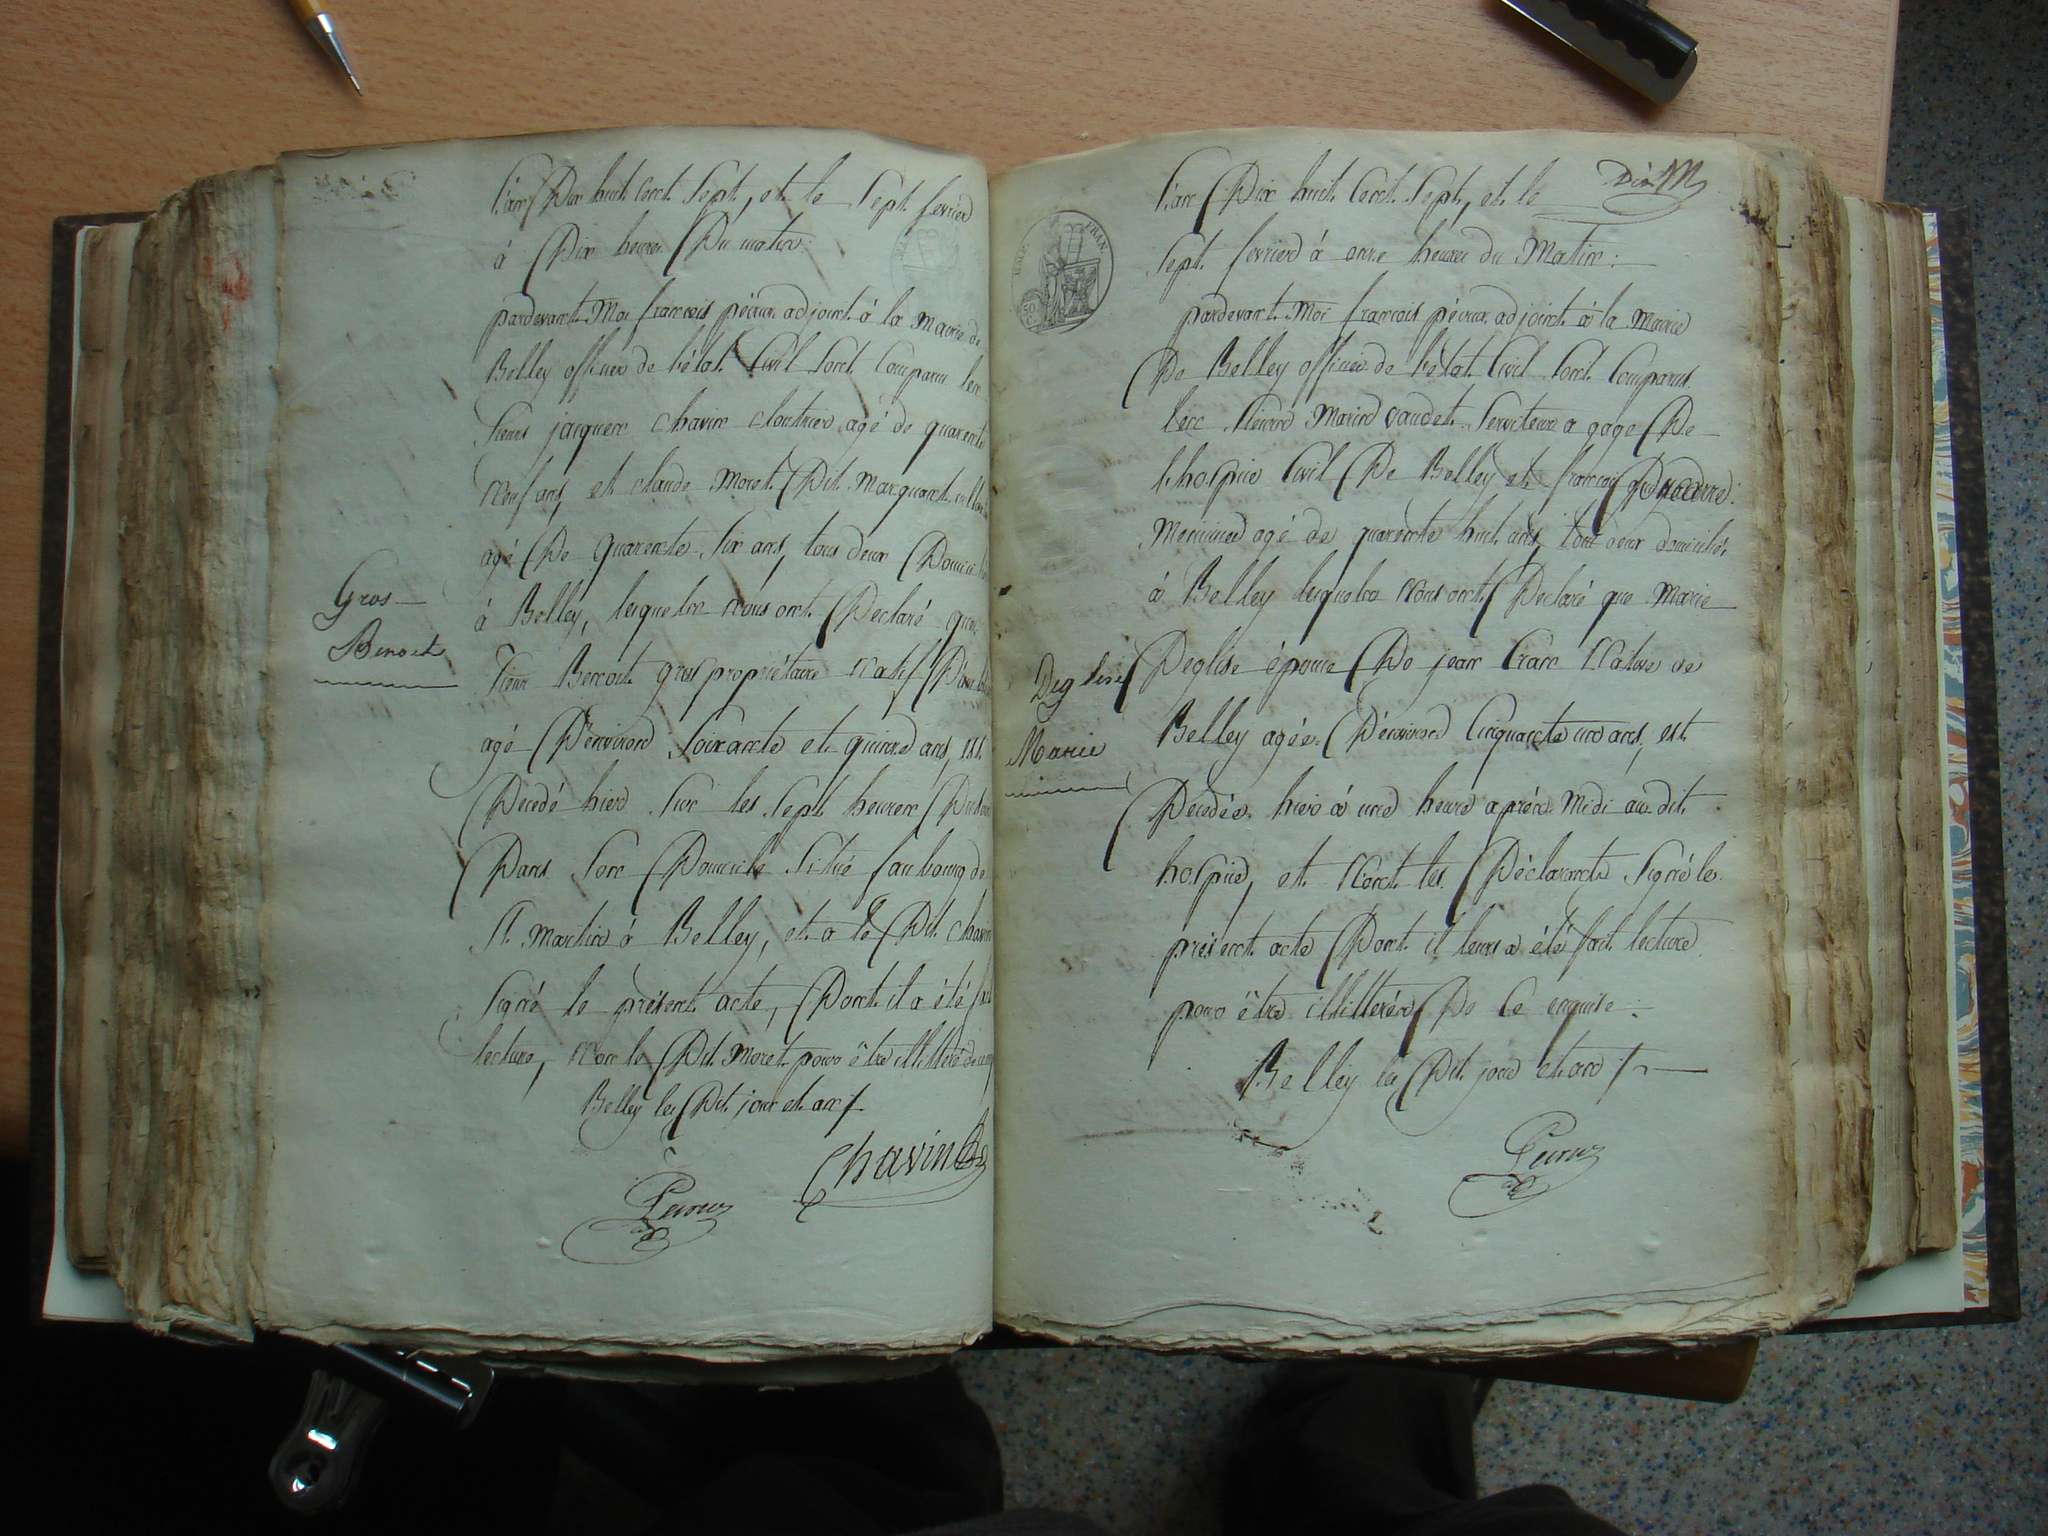 L'an Dix huit Cent Sept, et le Sept fevrier
à Dix heures Du matin:
pardevant Moi francois adjoint à la Mairie de
Belley officier de l'état Civil Sont Comparus les
Sieurs jacques chavin cloutrier agé de quarente
Neuf ans, et claude Moret Dit Marquant
agé De Quarente Six ans, tous deux
à Belley, lesquels Nous ont Declaré que
Gros
Benoit
Sieur Benoit gros propriétaire Natif
agé D'environ Soixante et quinze ans, est
Decedé hier Sur les Sept heures
Dans Son Domicile Situé faubourg de
St. Martin à Belley, et a le Dit Chavin
Signé le présent acte, Dont il a été fait
lecture, Non le Dit Moret pour être illitteré
Belley les Dit jour et an
Chavin
L'an Dix huit Cent Sept, et le
Sept fevrier à onze heures du Matin:
EMP. FRAN.
50 C
pardevant Moi francois adjoint à la Mairie
De Belley officier de l'état Civil Sont Comparus
les Sieurs Marin vaudet Serviteur a gage De
l'hospice Civil De Belley et francois
Menuisier agé de quarente huit ans, tous deux domiciliés
à Belley lesquels Nous ont Declaré que Marie
Deglise
Marie
Deglise épouse De jean Cran Native de
Belley agée D'environ Cinquante un ans, est
Decedée hier à une heure aprés Midi au dit
hospice, et N'ont les Déclarants Signé le
présent acte Dont il leurs a été fait lecture
pour être illitterés De ce enquis:
Belley les Dit jour et an